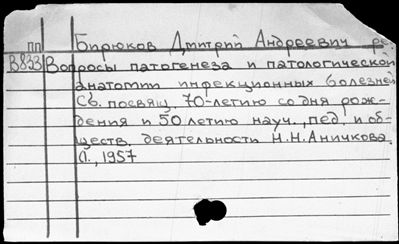 пп Бирюков Дмитрий Андреевич ре
В833 Вопросы патогенеза и патологической
анатомии инфекционных болезней
Сб. посвящ. 70-летию со дня рож-
дения и 50 летию науч., пед. и об-
ществ. деятельности Н.Н.Аничкова.
Л., 1957